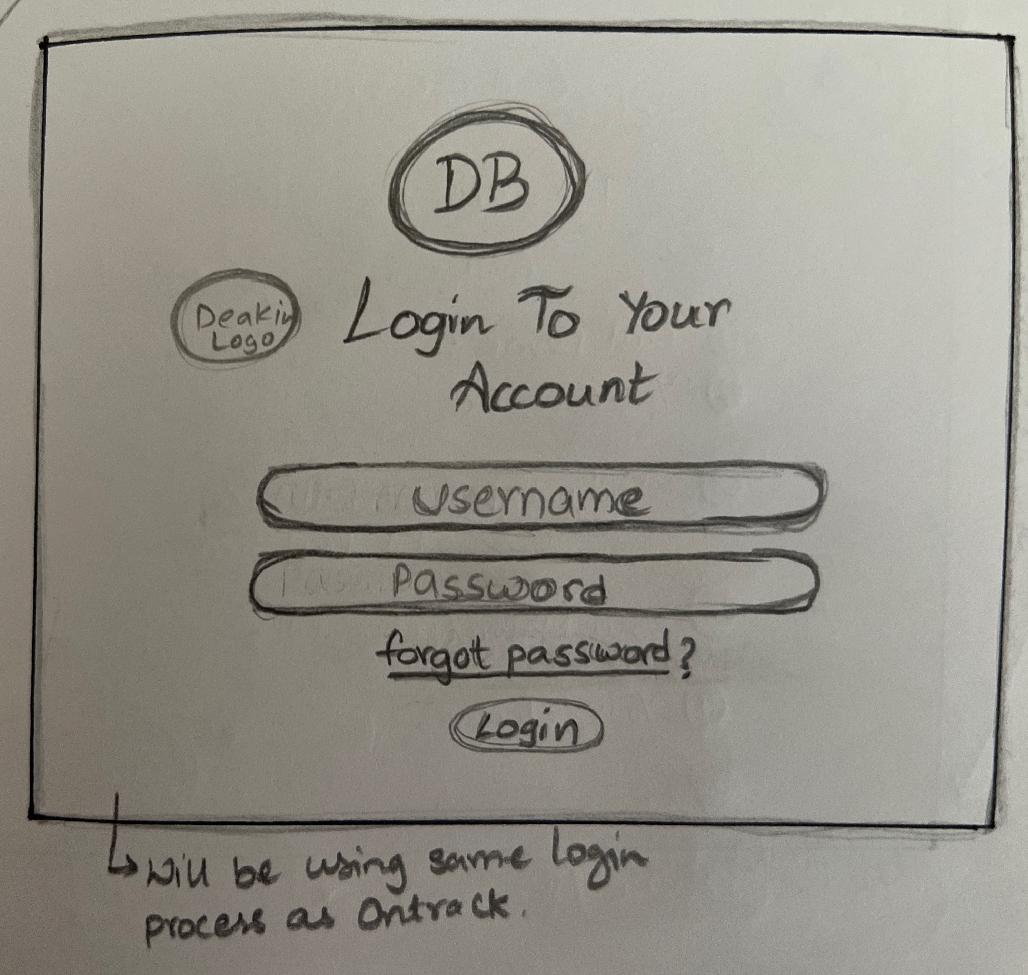 DB
Deakin
Logo
Login To Your
Account
username
Password
forgot password?
Login
Will be using same login
process as Ontrack.